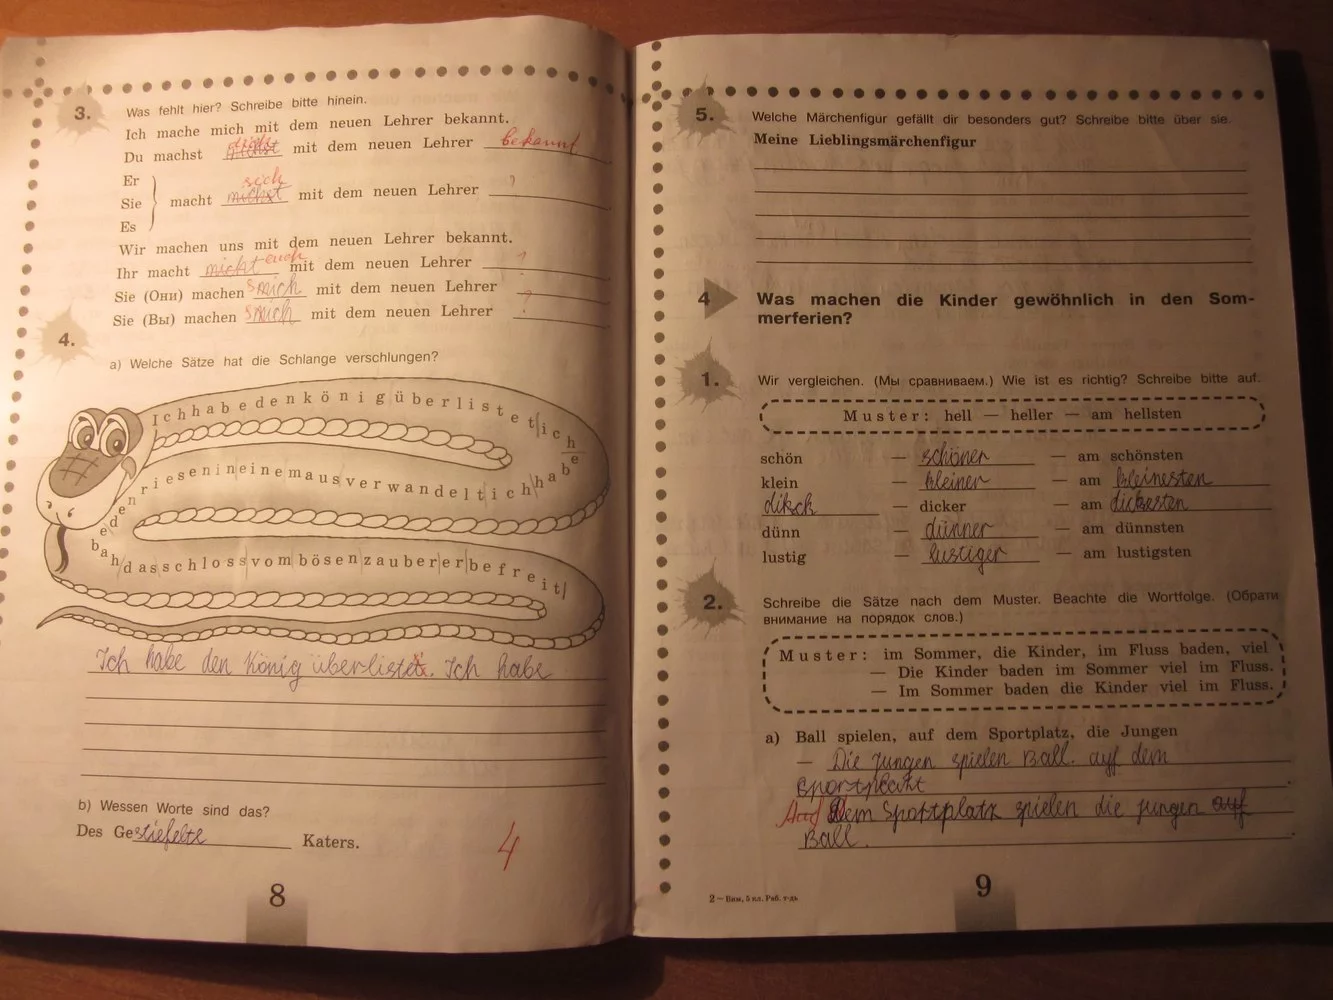 3.
Was fehlt hier? Schreibe bitte hinein.
Ich mache mich mit dem neuen Lehrer bekannt.
Du machst dich mit dem neuen Lehrer bekannt
Er
Sie
Es
macht michst sich mit dem neuen Lehrer ?
Wir machen uns mit dem neuen Lehrer bekannt.
Ihr macht micht euch mit dem neuen Lehrer ?
Sie (Они) machen smich mit dem neuen Lehrer
Sie (Вы) machen smich mit dem neuen Lehrer ?
4.
a) Welche Sätze hat die Schlange verschlungen?
Ichhabedenkönigüberlistetichhabe
denriesenineinemausverwandeltichhabe
dasschlossvombösenzaubererbefreit
Ich habe den König überlistet. Ich habe
b) Wessen Worte sind das?
Des Gestiefelte Katers.
4
8
5.
Welche Märchenfigur gefällt dir besonders gut? Schreibe bitte über sie.
Meine Lieblingsmärchenfigur
4
Was machen die Kinder gewöhnlich in den Som-
merferien?
1.
Wir vergleichen. (Мы сравниваем.) Wie ist es richtig? Schreibe bitte auf.
Muster: hell — heller — am hellsten
schön — schöner — am schönsten
klein — kleiner — am kleinesten
diksh — dicker — am dickesten
dünn — dünner — am dünnsten
lustig — lustiger — am lustigsten
2.
Schreibe die Sätze nach dem Muster. Beachte die Wortfolge. (Обрати
внимание на порядок слов.)
Muster: im Sommer, die Kinder, im Fluss baden, viel
— Die Kinder baden im Sommer viel im Fluss.
— Im Sommer baden die Kinder viel im Fluss.
a) Ball spielen, auf dem Sportplatz, die Jungen
— Die Jungen spielen Ball. auf dem
Auf dem Sportplatz spielen die jungen auf
Ball.
2 — Бим, 5 кл. Раб. т-дь
9